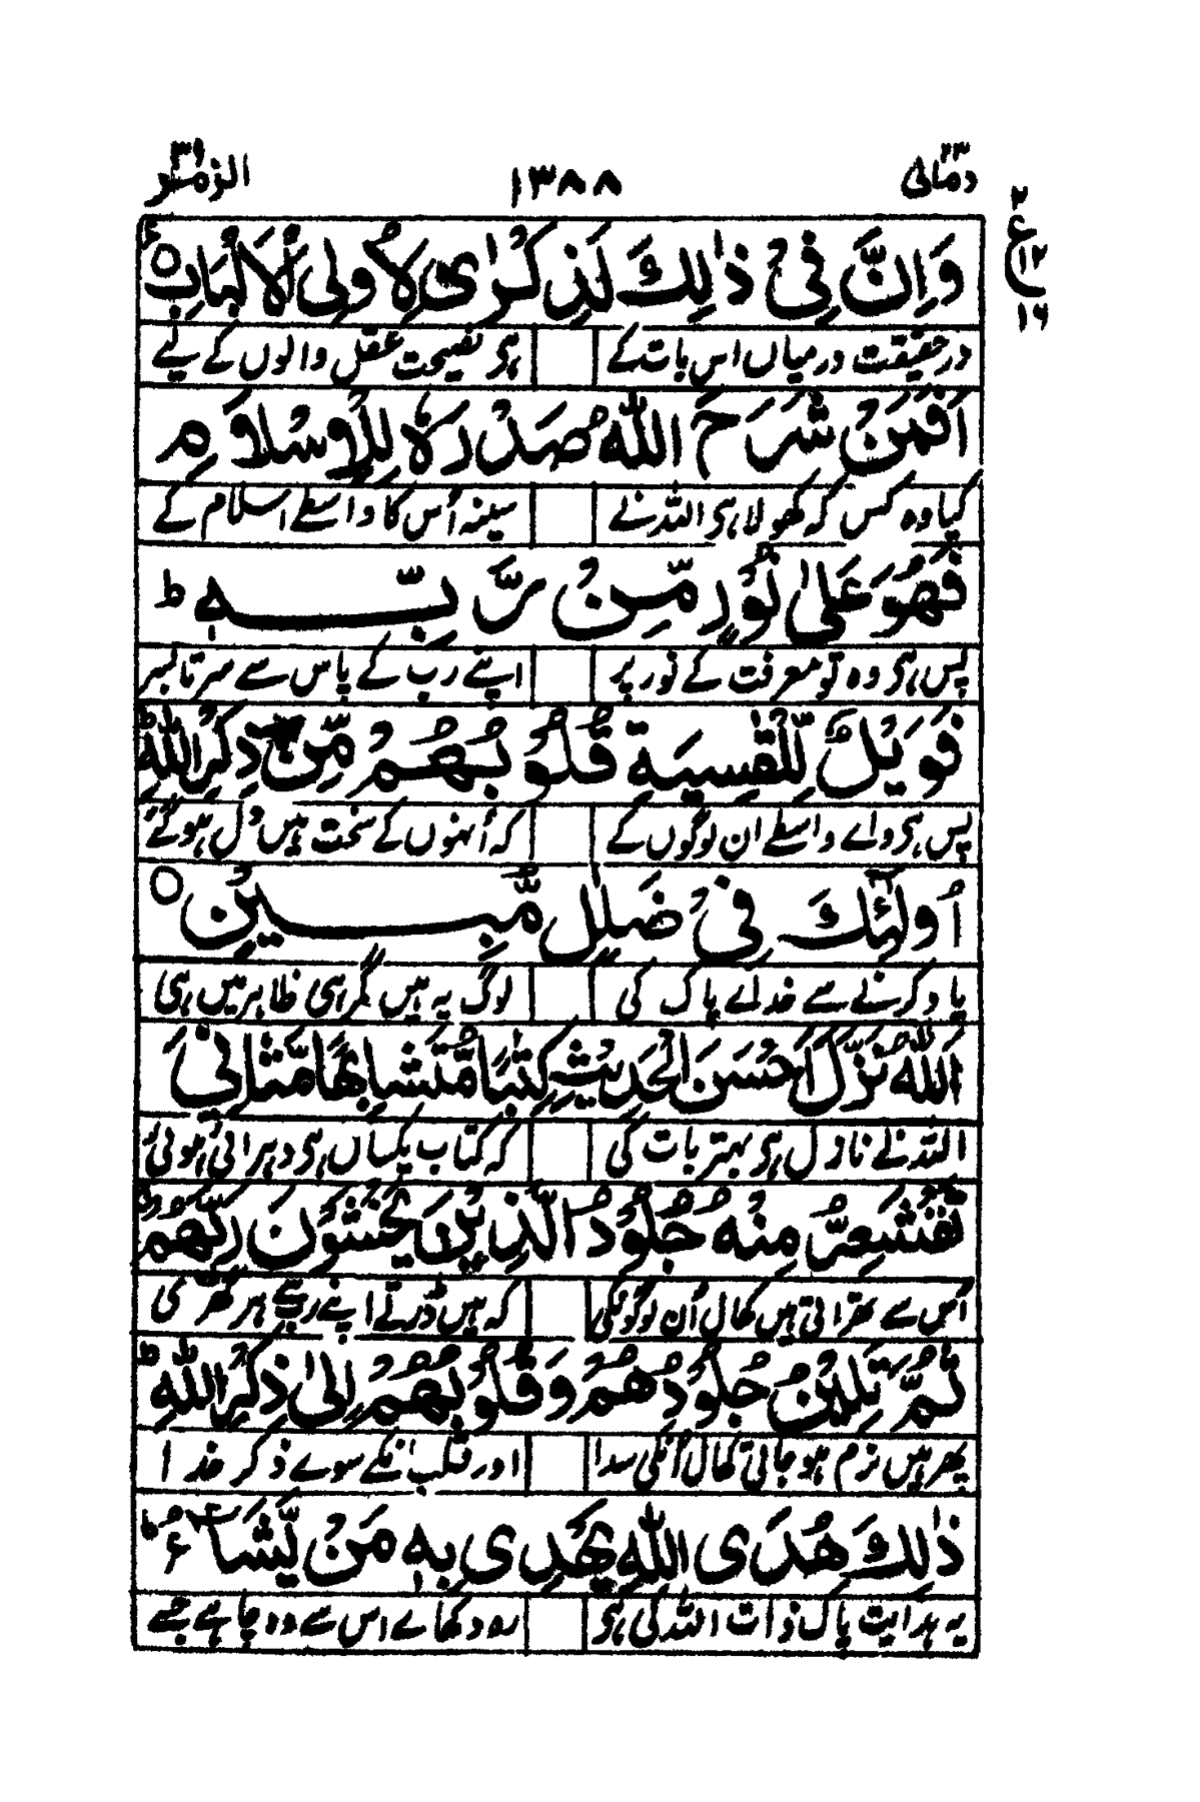 ومالی ۲۳ ۱۳۸۸ الزمر ۳۹
۲ ع ۱۲ ۱۶
وَاِنَّ فِیْ ذٰلِكَ لَذِكْرٰی لِاُولِی الْاَلْبَابِ ○ ع
درحقیقت درمیاں اس بات کے ہی نصیحت عقل والوں کے لیے
اَفَمَنْ شَرَحَ اللّٰهُ صَدْرَهٗ لِلْاِسْلَامِ
کیا وہ کس کہ کھولا ہی اللہ نے سینہ اُس کا واسطے اسلام کے
فَهُوَ عَلٰی نُوْرٍ مِّنْ رَّبِّهٖ ط
پس ہی وہ تو معرفت کے نور پر اپنے رب کے پاس سے سرتابسر
فَوَیْلٌ لِّلْقٰسِیَةِ قُلُوْبُهُمْ مِّنْ ذِكْرِ اللّٰهِ ط
پس ہی واے واسطے ان لوگوں کے کہ اُنہوں کے سخت ہیں دل ہوگئے
اُولٰٓئِكَ فِیْ ضَلٰلٍ مُّبِیْنٍ ○
یاد کرنے سے خداے پاک کی لوگ یہ ہیں گمراہی ظاہر میں ہی
اَللّٰهُ نَزَّلَ اَحْسَنَ الْحَدِیْثِ كِتٰبًا مُّتَشَابِهًا مَّثَانِیَ
اللہ نے نازل ہی بہتر بات کی کہ کتاب یکساں ہی دہرائی ہوئی
تَقْشَعِرُّ مِنْهُ جُلُوْدُ الَّذِیْنَ یَخْشَوْنَ رَبَّهُمْ ج
اُس سے تھرّاتی ہیں کھال اُن لوگونکی کہ ہیں ڈرتے اپنے ربسے ہر گھڑی
ثُمَّ تَلِیْنُ جُلُوْدُهُمْ وَقُلُوْبُهُمْ اِلٰی ذِكْرِ اللّٰهِ ط
پھر ہیں نرم ہو جاتی کھال اُنکی سدا اور قلب انکے سوے ذکر خدا
ذٰلِكَ هُدَی اللّٰهِ یَهْدِیْ بِهٖ مَنْ یَّشَآءُ ط
یہ ہدایت پاک ذات اللہ کی ہی رہ دکھاے اس سے وہ چاہے جسے